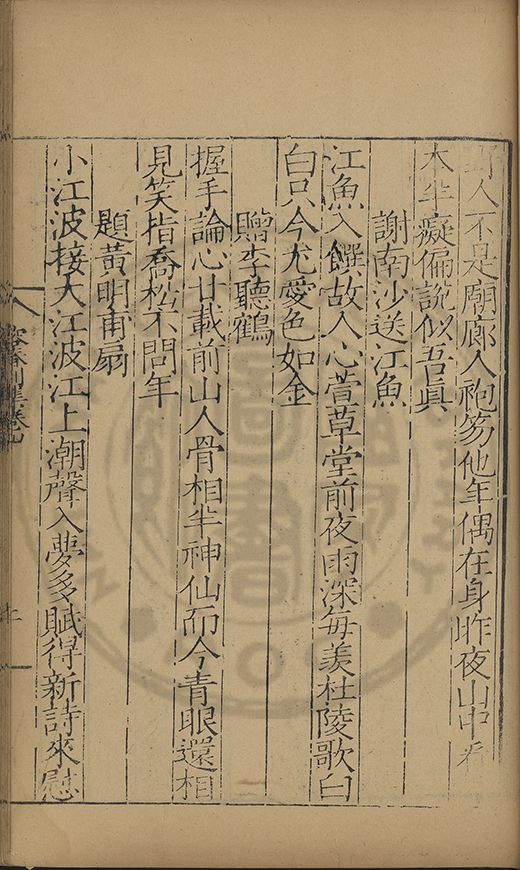 野人不是廟廊人袍笏他年偶在身昨夜山中看
木半癡偏說似吾真
謝南沙送江魚
江魚入饌故人心萱草堂前夜雨深每羨杜陵歌白
白只今尤愛色如金
贈李聽鶴
握手論心廿載前山人骨相半神仙而今青眼還相
見笑指喬松不問年
題黃明甫扇
小江波接大江波江上潮聲入夢多賦得新詩來慰